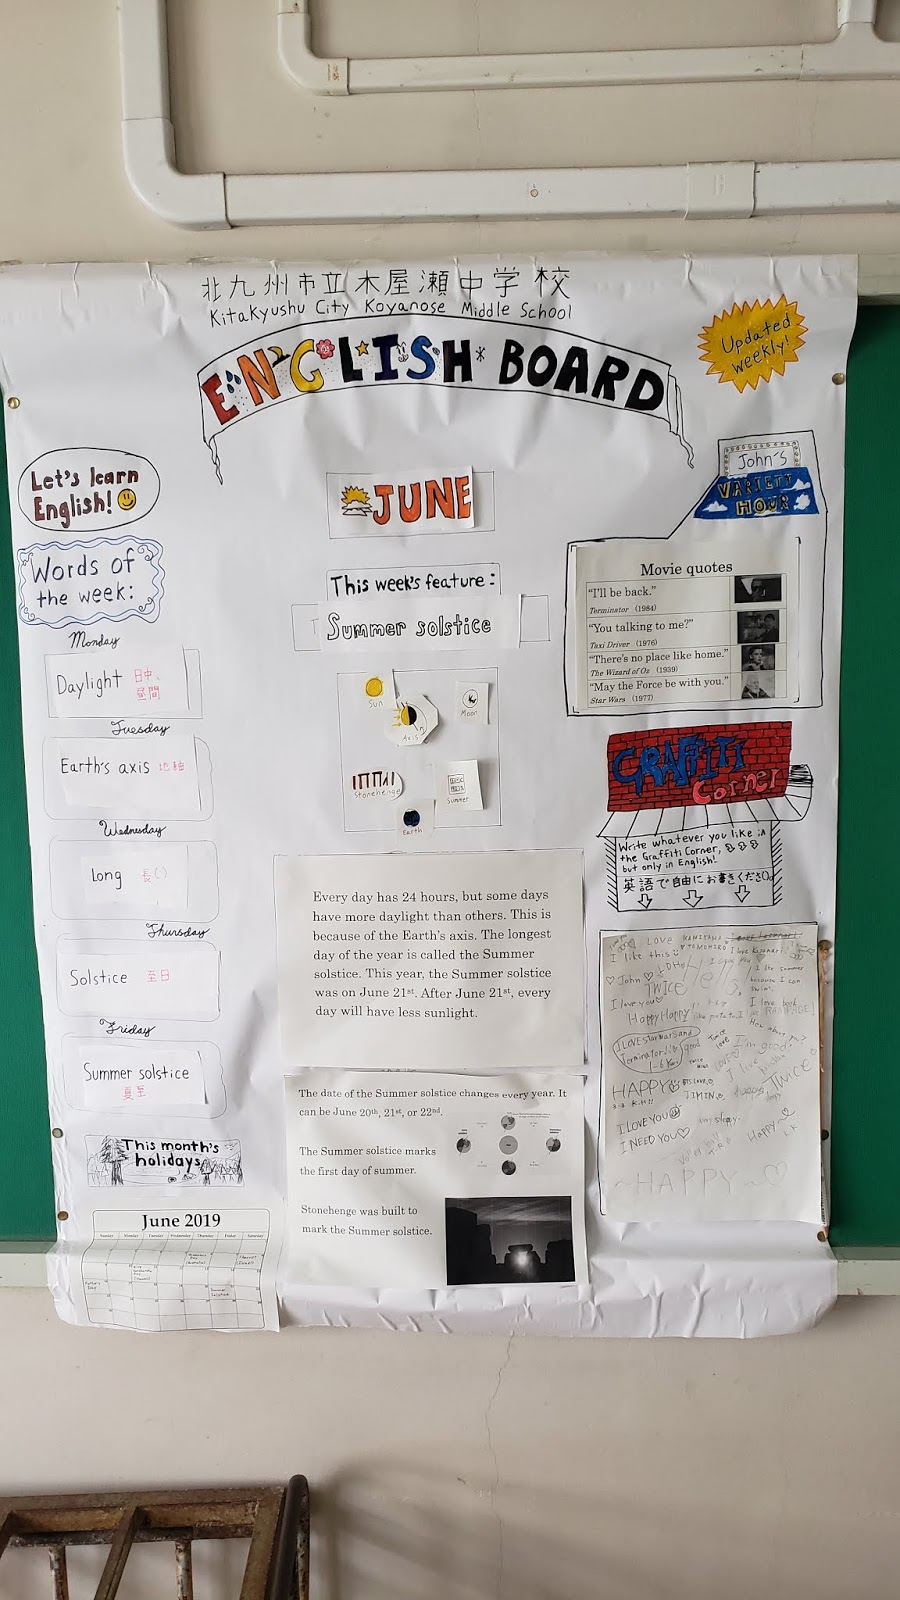 北九州市立木屋瀬中学校
Kitakyushu City Koyanose Middle School
ENGLISH BOARD
Updated
weekly!
Let's learn
English!
Words of
the week:
Monday
Daylight 日中、
昼間
Tuesday
Earth's axis 地軸
Wednesday
Long 長い
Thursday
Solstice 至日
Friday
Summer solstice
夏至
This month's
holidays
June 2019
Sunday Monday Tuesday Wednesday Thursday Friday Saturday
JUNE
This week's feature:
Summer solstice
Sun
Axis
Moon
Stonehenge
Summer
Earth
Every day has 24 hours, but some days
have more daylight than others. This is
because of the Earth's axis. The longest
day of the year is called the Summer
solstice. This year, the Summer solstice
was on June 21st. After June 21st, every
day will have less sunlight.
The date of the Summer solstice changes every year. It
can be June 20th, 21st, or 22nd.
The Summer solstice marks
the first day of summer.
Stonehenge was built to
mark the Summer solstice.
John's
VARIETY
HOUR
Movie quotes
"I'll be back."
Terminator (1984)
"You talking to me?"
Taxi Driver (1976)
"There's no place like home."
The Wizard of Oz (1939)
"May the Force be with you."
Star Wars (1977)
GRAFFITI
Corner
Write whatever you like in
the Graffiti Corner,
but only in English!
英語で自由にお書きください。
I like this
LOVE
John
TWICE
Hello
I love you
Happy Happy!
I'm good
HAPPY
JIMIN
TWICE
I LOVE YOU
I NEED YOU
Happy
HAPPY